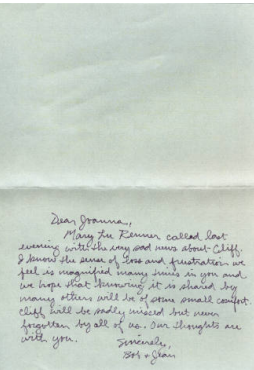 Dear Joanna,
Mary Lu Renner called last
evening with the very sad news about Cliff.
I know the sense of loss and frustration we
feel is magnified many times in you and
we hope that knowing it is shared by
many others will be of some small comfort.
Cliff will be sadly missed but never
forgotten by all of us. Our thoughts are
with you.
Sincerely,
Bob & Jean